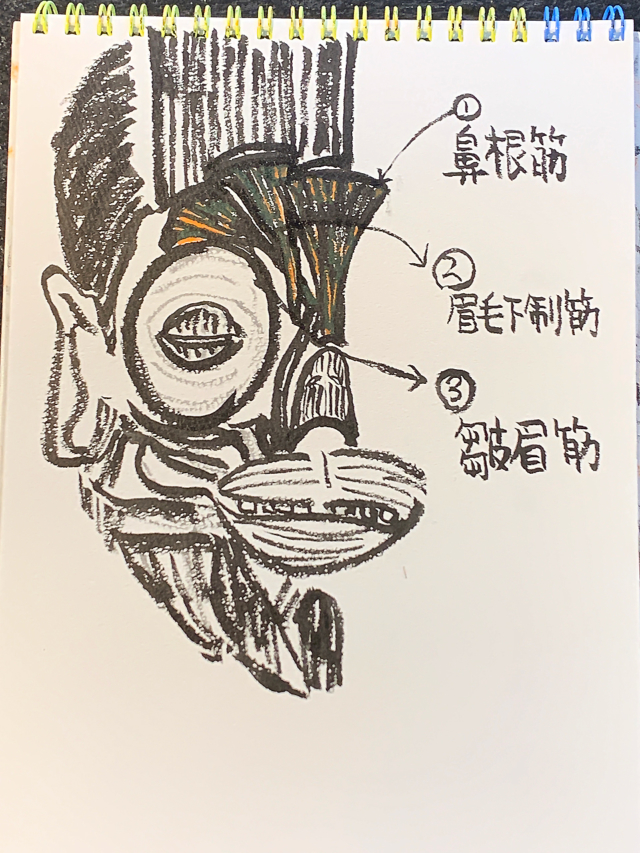 ①
鼻根筋
②
眉毛下制筋
③
皺眉筋